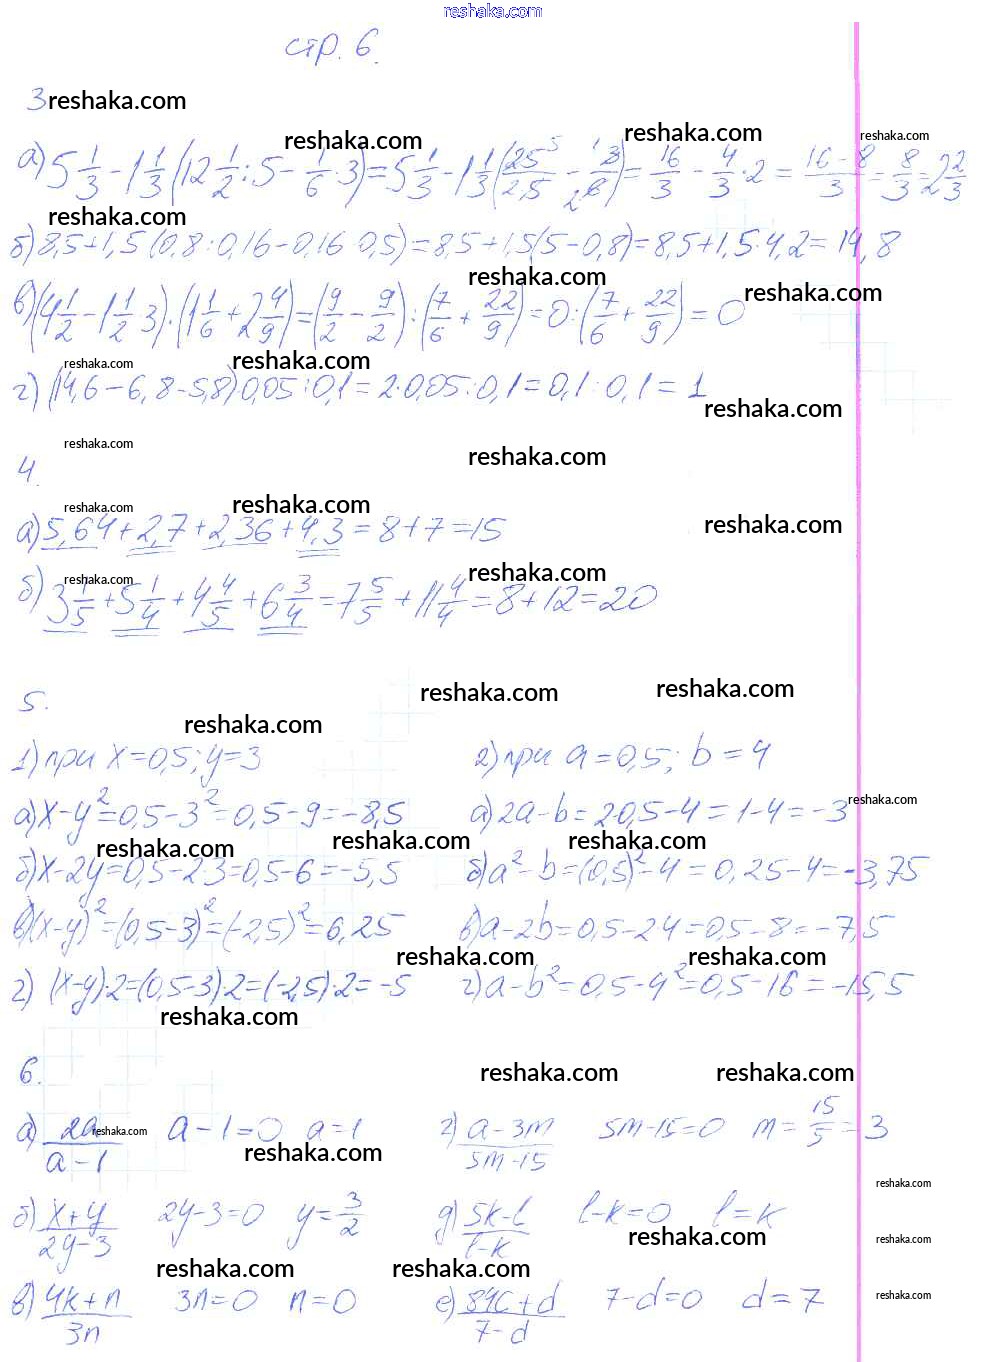 reshaka.com
стр. 6.
3 reshaka.com
reshaka.com reshaka.com reshaka.com
а) 5 1/3 - 1 1/3 (12 1/2 : 5 - 1/6 · 3) = 5 1/3 - 1 1/3 (25 5/2·5 - 1 3/2 6) = 16/3 - 4/3 · 2 = 16-8/3 = 8/3 = 2 2/3
reshaka.com
б) 8,5+1,5(0,8:0,16-0,16·0,5)=8,5+1,5(5-0,8)=8,5+1,5·4,2=14,8
reshaka.com reshaka.com
в) (4 1/2 - 1 1/2 · 3) : (1 1/6 + 2 4/9) = (9/2 - 9/2) : (7/6 + 22/9) = 0 : (7/6 + 22/9) = 0
reshaka.com reshaka.com
г) (14,6-6,8-5,8)·0,05:0,1=2·0,05:0,1=0,1:0,1=1
reshaka.com
reshaka.com reshaka.com
4.
reshaka.com reshaka.com reshaka.com
а) 5,64+2,7+2,36+4,3=8+7=15
reshaka.com reshaka.com
б) 3 1/5 + 5 1/4 + 4 4/5 + 6 3/4 = 7 5/5 + 11 4/4 = 8+12=20
reshaka.com reshaka.com
5.
reshaka.com
1) при x=0,5; y=3 2) при a=0,5; b=4
reshaka.com
а) x-y²=0,5-3²=0,5-9=-8,5 а) 2a-b=2·0,5-4=1-4=-3
reshaka.com reshaka.com reshaka.com
б) x-2y=0,5-2·3=0,5-6=-5,5 б) a²-b=(0,5)²-4=0,25-4=-3,75
в) (x-y)²=(0,5-3)²=(-2,5)²=6,25 в) a-2b=0,5-2·4=0,5-8=-7,5
reshaka.com reshaka.com
г) (x-y)·2=(0,5-3)·2=(-2,5)·2=-5 г) a-b²=0,5-4²=0,5-16=-15,5
reshaka.com
6. reshaka.com reshaka.com
а) 2a/a-1 a-1=0 a=1 г) a-3m/5m-15 5m-15=0 m=15/5=3
reshaka.com reshaka.com
reshaka.com
б) x+y/2y-3 2y-3=0 y=3/2 д) 5k-l/l-k l-k=0 l=k
reshaka.com reshaka.com
reshaka.com reshaka.com
в) 4k+n/3n 3n=0 n=0 е) 84c+d/7-d 7-d=0 d=7
reshaka.com